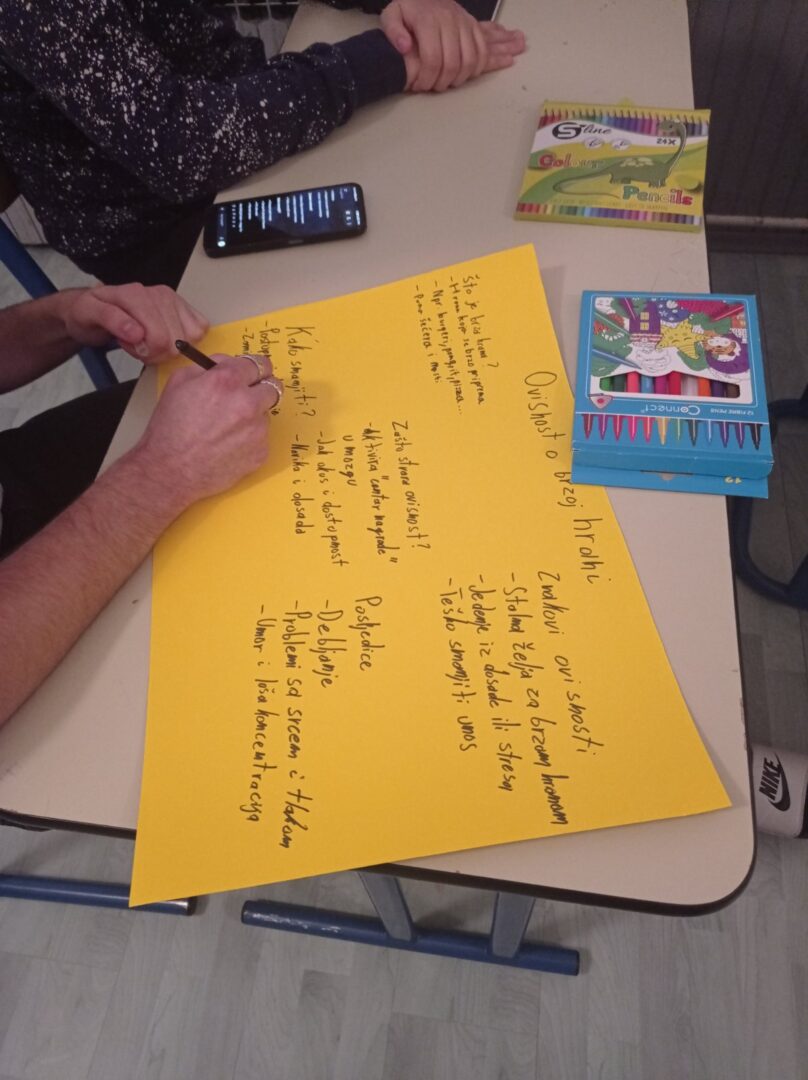 Ovisnost o brzoj hrani
Što je brza hrana?
- Hrana koja se brzo priprema
- Npr burgeri, pomfrit, pizza...
- Puno šećera i masti
Znakovi ovisnosti
- Stalna želja za brzom hranom
- Jedenje iz dosade ili stresa
- Teško smanjiti unos
Zašto stvara ovisnost?
- Aktivira "centar nagrade"
u mozgu
- Jak okus i dostupnost
- Navika i dosada
Posljedice
- Debljanje
- Problemi sa srcem i tlakom
- Umor i loša koncentracija
Kako smanjiti?
S-line
24X
Colour
Pencils
Connect
12 FIBRE PENS
NIKE